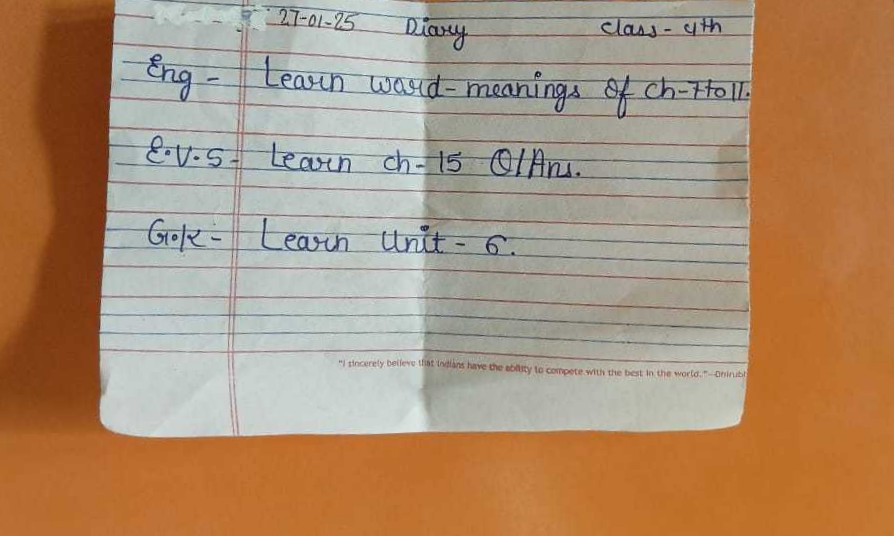 27-01-25 Diary Class - 4th
Eng - Learn word-meanings of ch-7 to 11.
E.V.S - Learn ch-15 Q/Ans.
G.K - Learn Unit - 6.
"I sincerely believe that Indians have the ability to compete with the best in the world."—Dhirubh